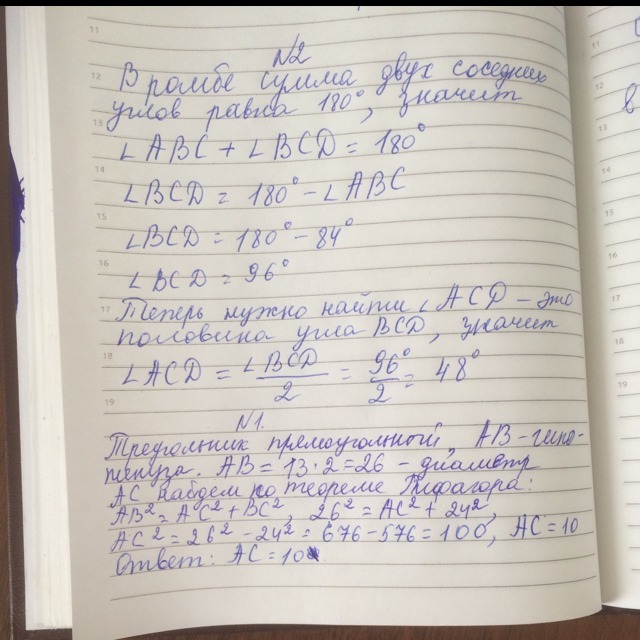 N2
В ромбе сумма двух соседних
углов равна 180°, значит
∠ABC + ∠BCD = 180°
∠BCD = 180° - ∠ABC
∠BCD = 180° - 84°
∠BCD = 96°
Теперь нужно найти ∠ACD - это
половина угла BCD, значит
∠ACD = ∠BCD/2 = 96°/2 = 48°
N1.
Треугольник прямоугольной, AB - гипо-
тенуза. AB = 13·2 = 26 - диаметр
AC найдем по теореме Пифагора:
AB² = AC² + BC², 26² = AC² + 24²,
AC² = 26² - 24² = 676 - 576 = 100, AC = 10
Ответ: AC = 10
11
12
13
14
15
16
17
18
19
11
12
13
в
15
16
17
18
19